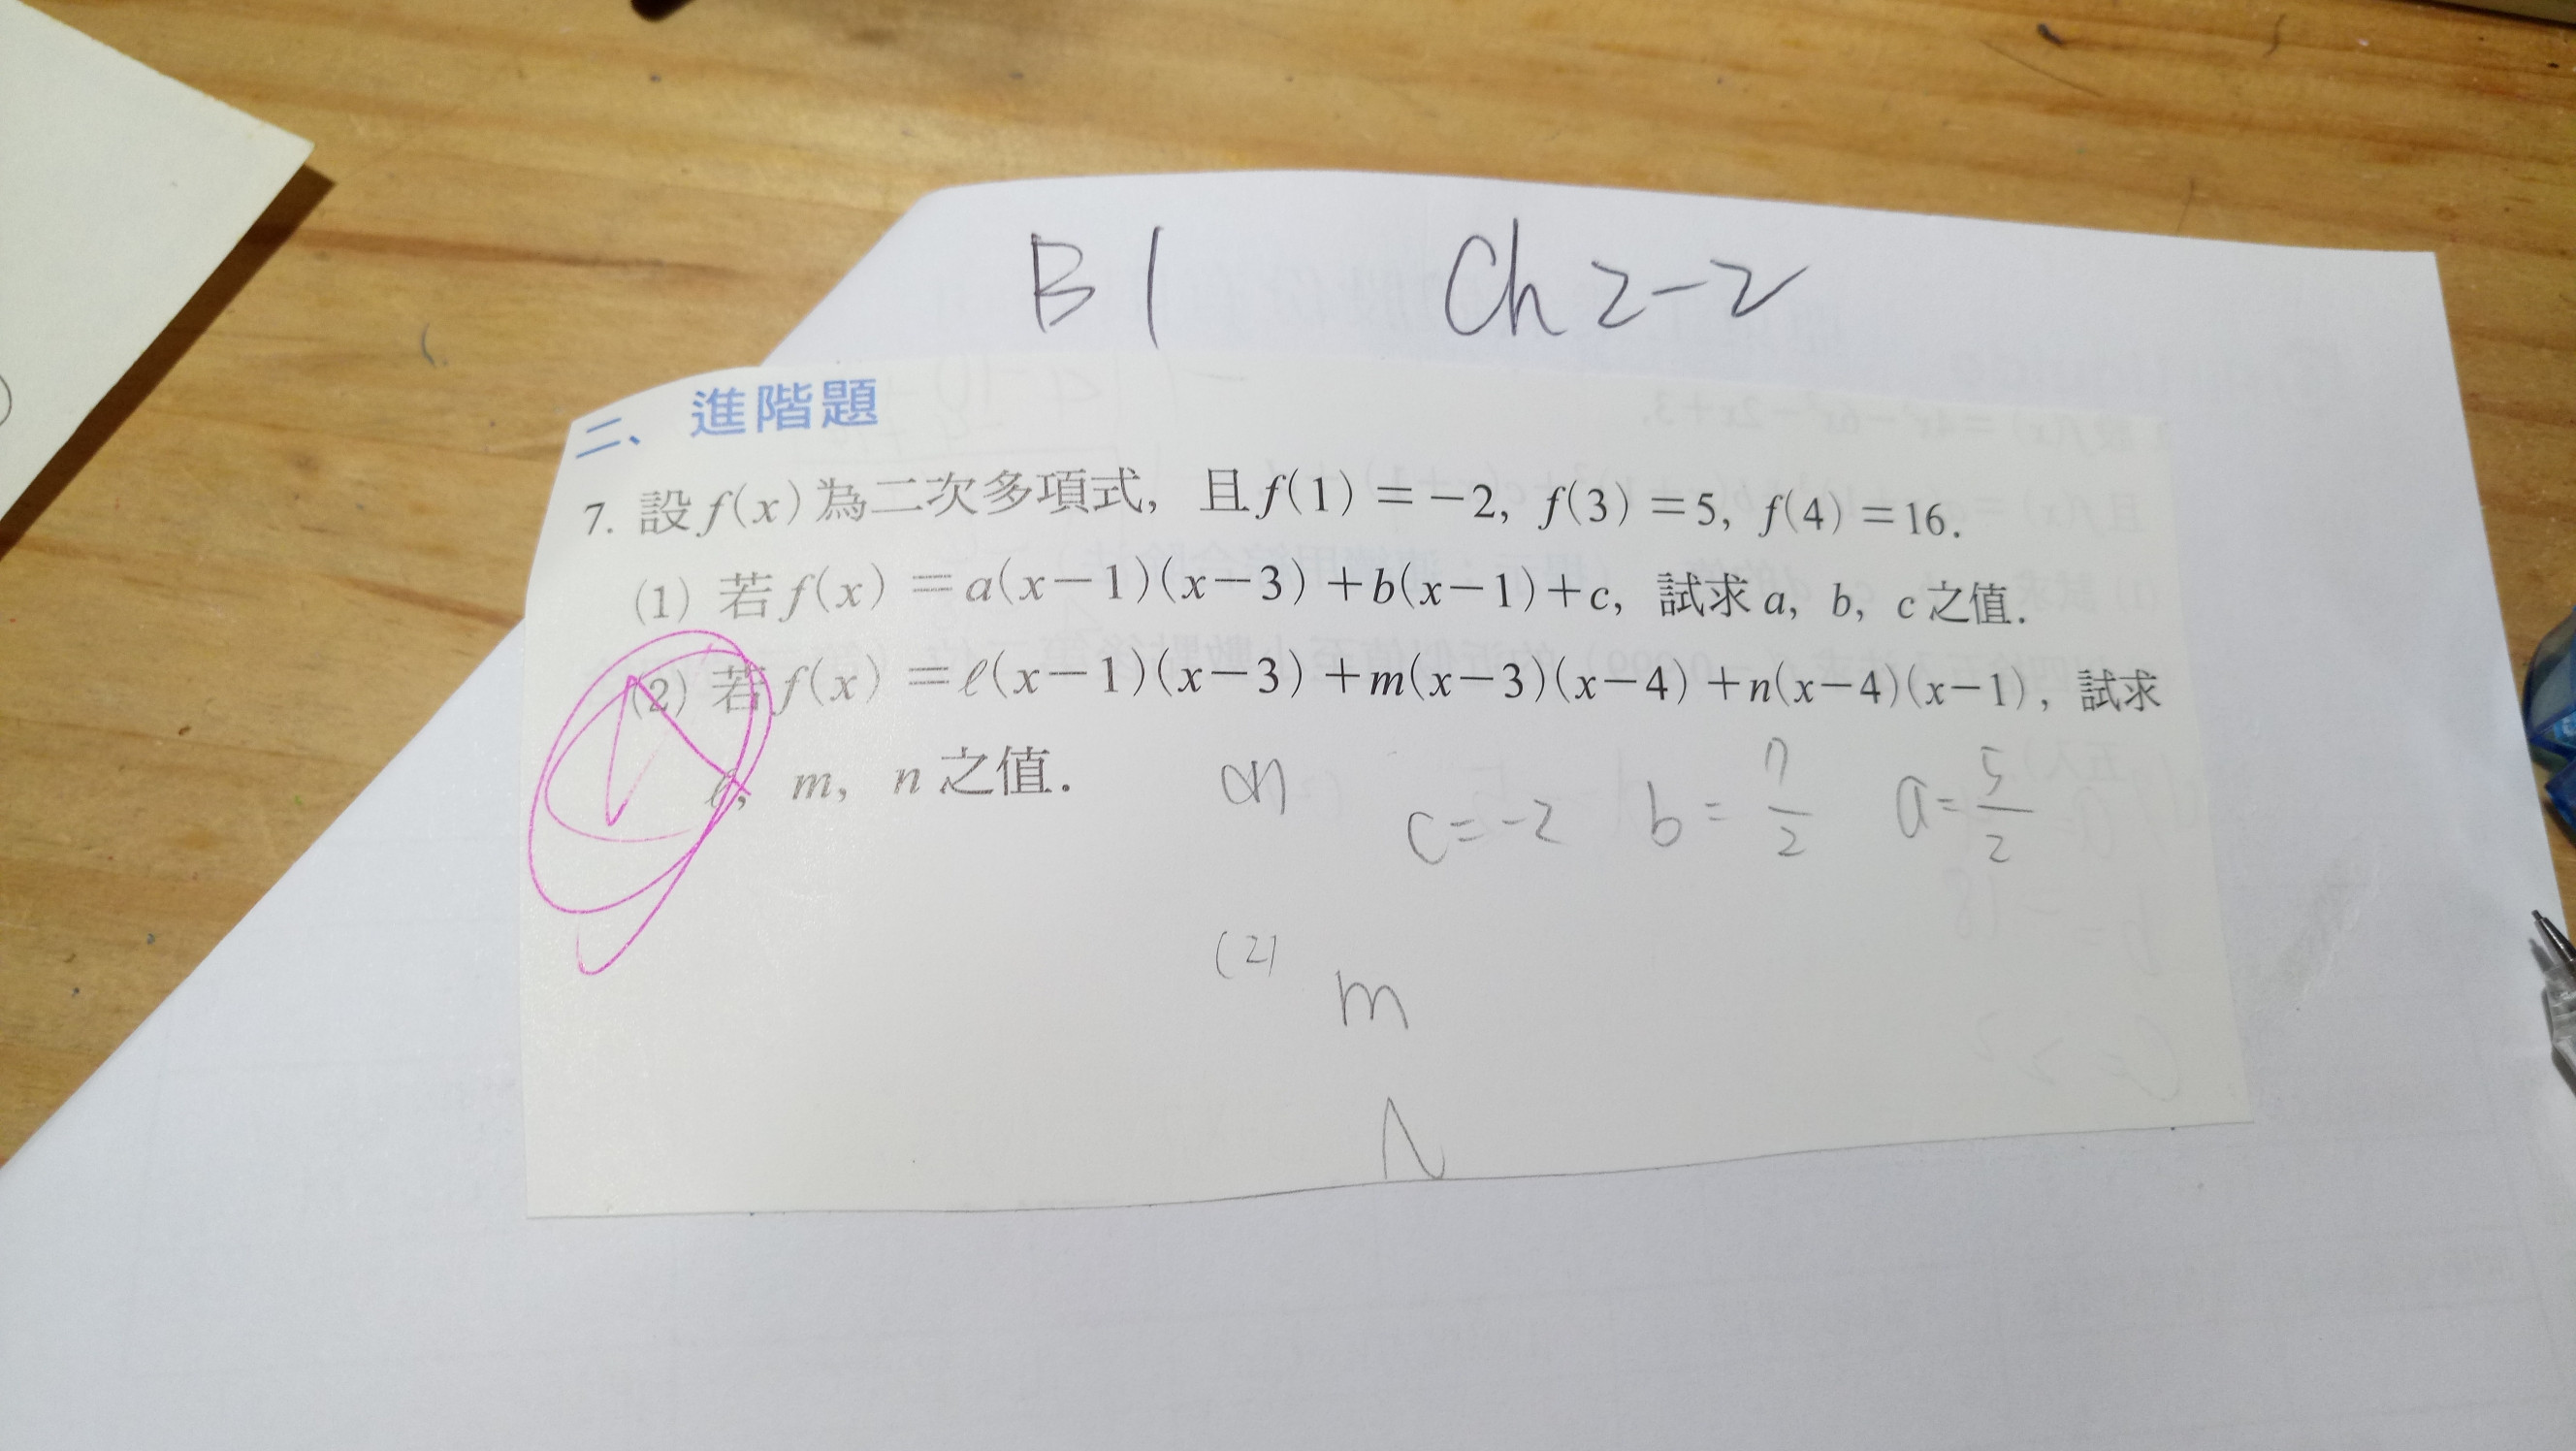 B1 Ch 2-2
二、進階題
7. 設f(x)為二次多項式，且f(1)=-2, f(3)=5, f(4)=16.
(1) 若f(x)=a(x-1)(x-3)+b(x-1)+c, 試求a, b, c之值.
(2) 若f(x)=ℓ(x-1)(x-3)+m(x-3)(x-4)+n(x-4)(x-1), 試求
ℓ, m, n之值.
(1) c=-2 b=7/2 a=5/2
(2) m